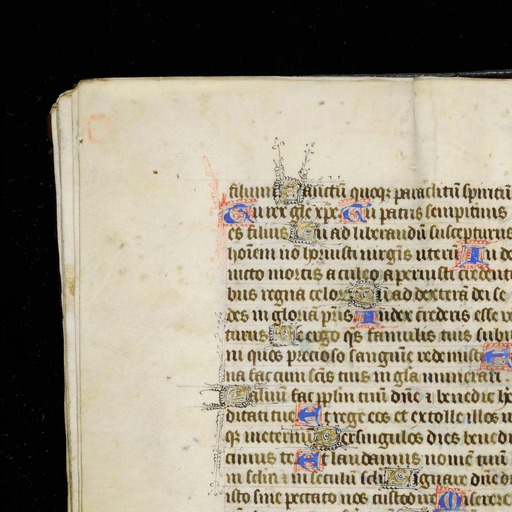 filium Sanctū quoq; paraclitū spiritū
Tu rex gle xpe Tu patris sempitnus
es filius Tu ad liberandū suscepturus
hoīem nō horruisti uirgīs uterū Tu de
uicto mortis aculeo aperuisti credenti
bus regna celor Tu ad dexterā dei se
des in gloria pr̄is Iudex crederis esse ve
turus Te ergo qs famulis tuis subu
ni quos precioso sanguine redemisti E
na fac cum scīs tuis in gla numerari
Saluū fac pplm tuū dn̄e ⁊ benedic he
ditati tue Et rege eos et extolle illos u
qȝ in eternū Per singulos dies benedi
cimus te Et laudamus nomē tuū
in sclm ⁊ in seculū scli Dignare dn̄e di
isto sine peccato nos custodire Miserere